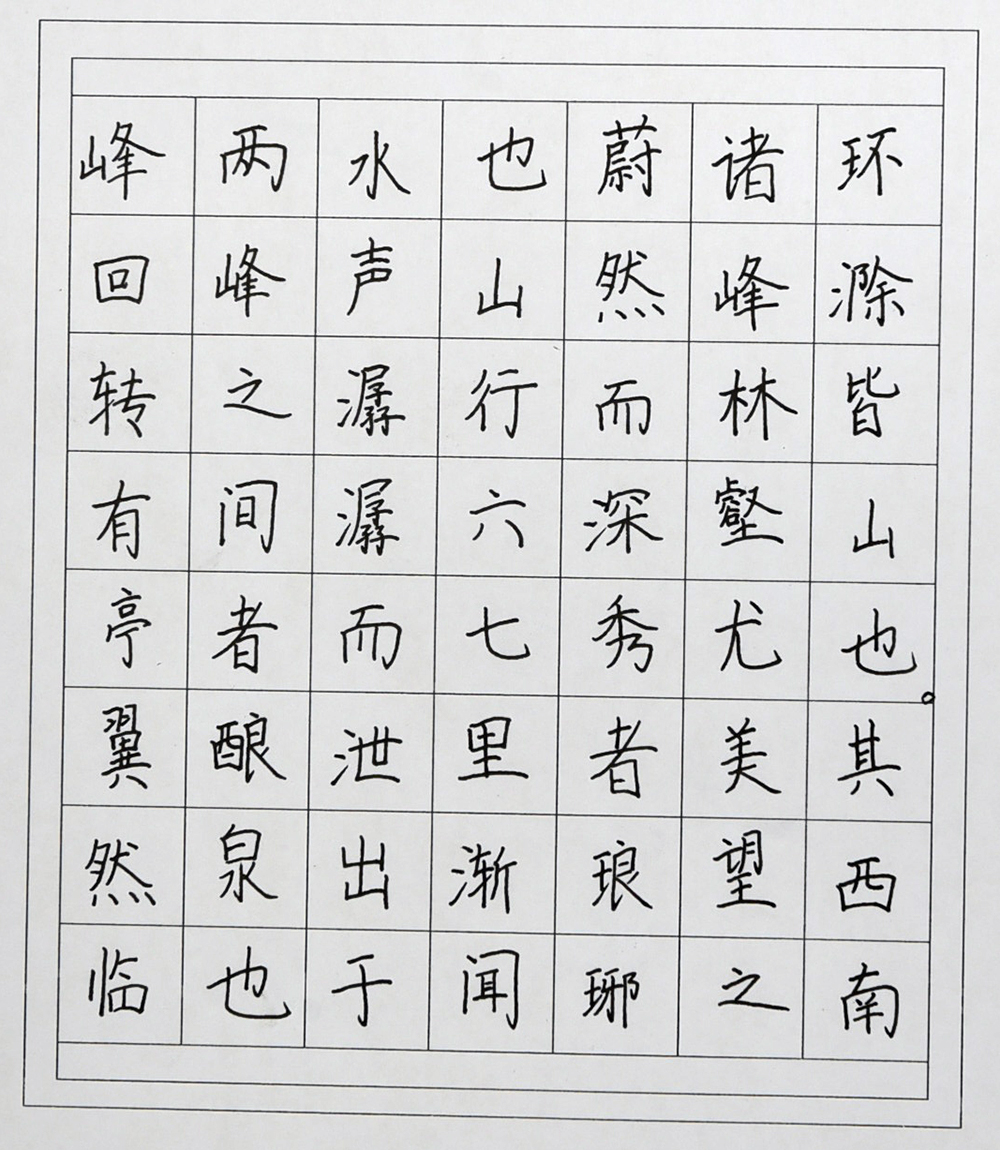 环滁皆山也。其西南
诸峰林壑尤美望之
蔚然而深秀者琅琊
也山行六七里渐闻
水声潺潺而泄出于
两峰之间者酿泉也
峰回转有亭翼然临